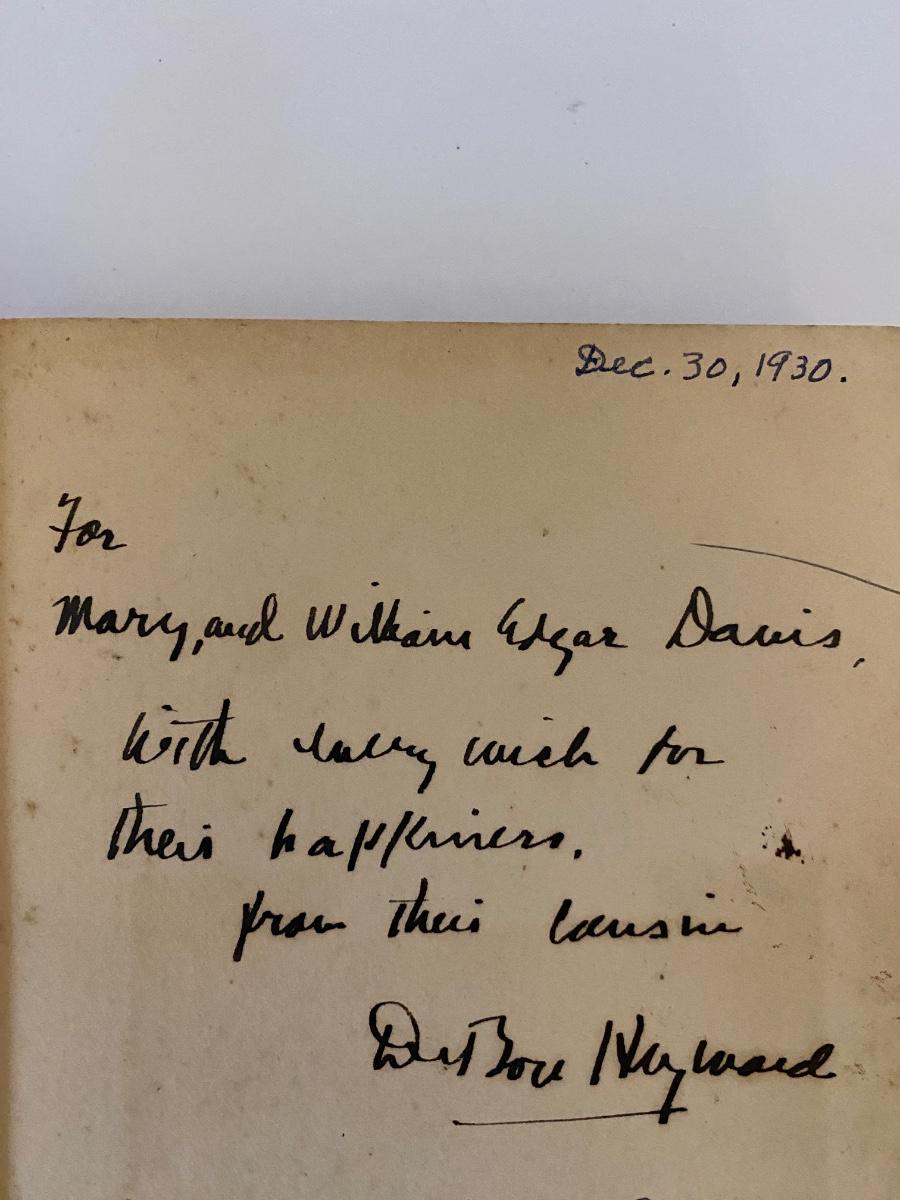 Dec. 30, 1930.
For
Mary, and William Edgar Davis,
With every wish for
their happiness.
from their cousin
DuBose Heyward